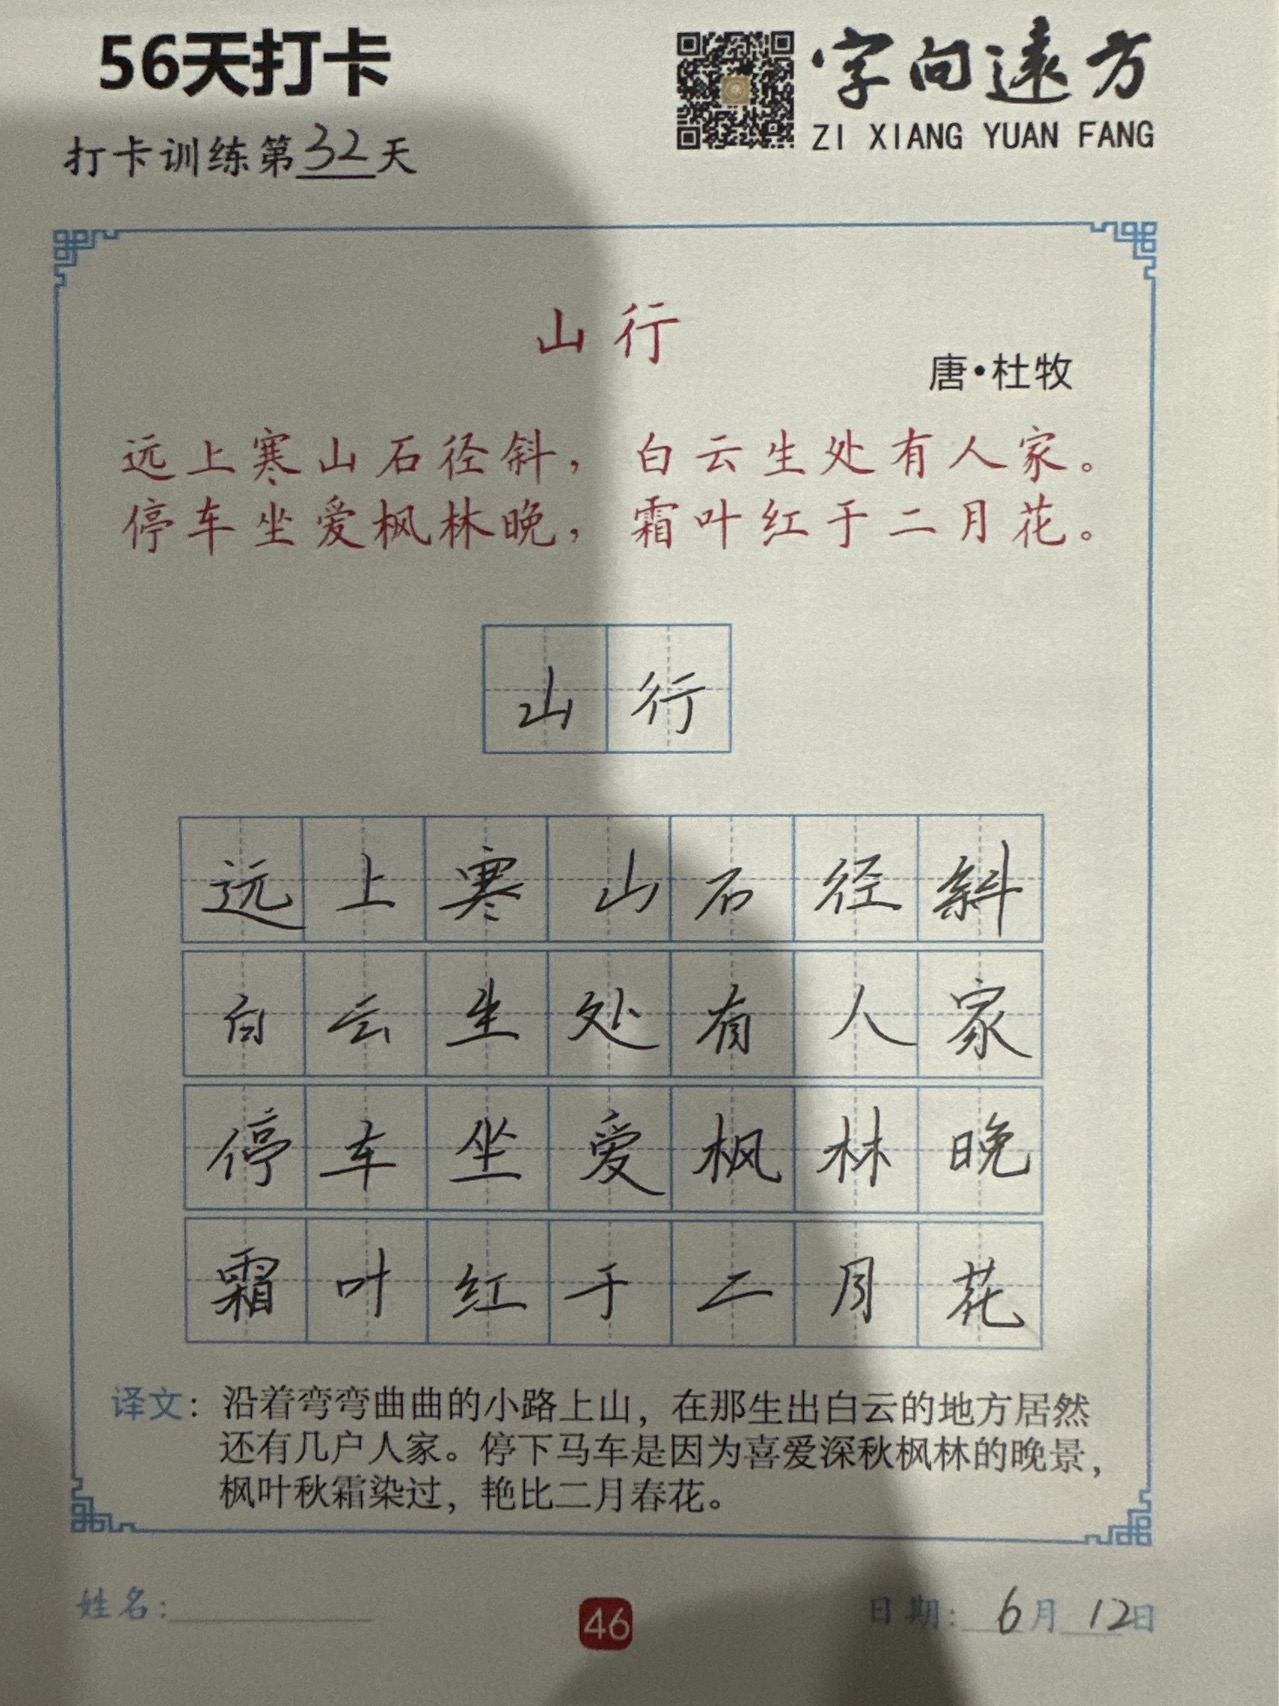 56天打卡
字向遠方
ZI XIANG YUAN FANG
打卡训练第32天
山行
唐•杜牧
远上寒山石径斜，白云生处有人家。
停车坐爱枫林晚，霜叶红于二月花。
山行
远上寒山石径斜
白云生处有人家
停车坐爱枫林晚
霜叶红于二月花
译文：沿着弯弯曲曲的小路上山，在那生出白云的地方居然
还有几户人家。停下马车是因为喜爱深秋枫林的晚景，
枫叶秋霜染过，艳比二月春花。
姓名:
46
日期: 6月12日